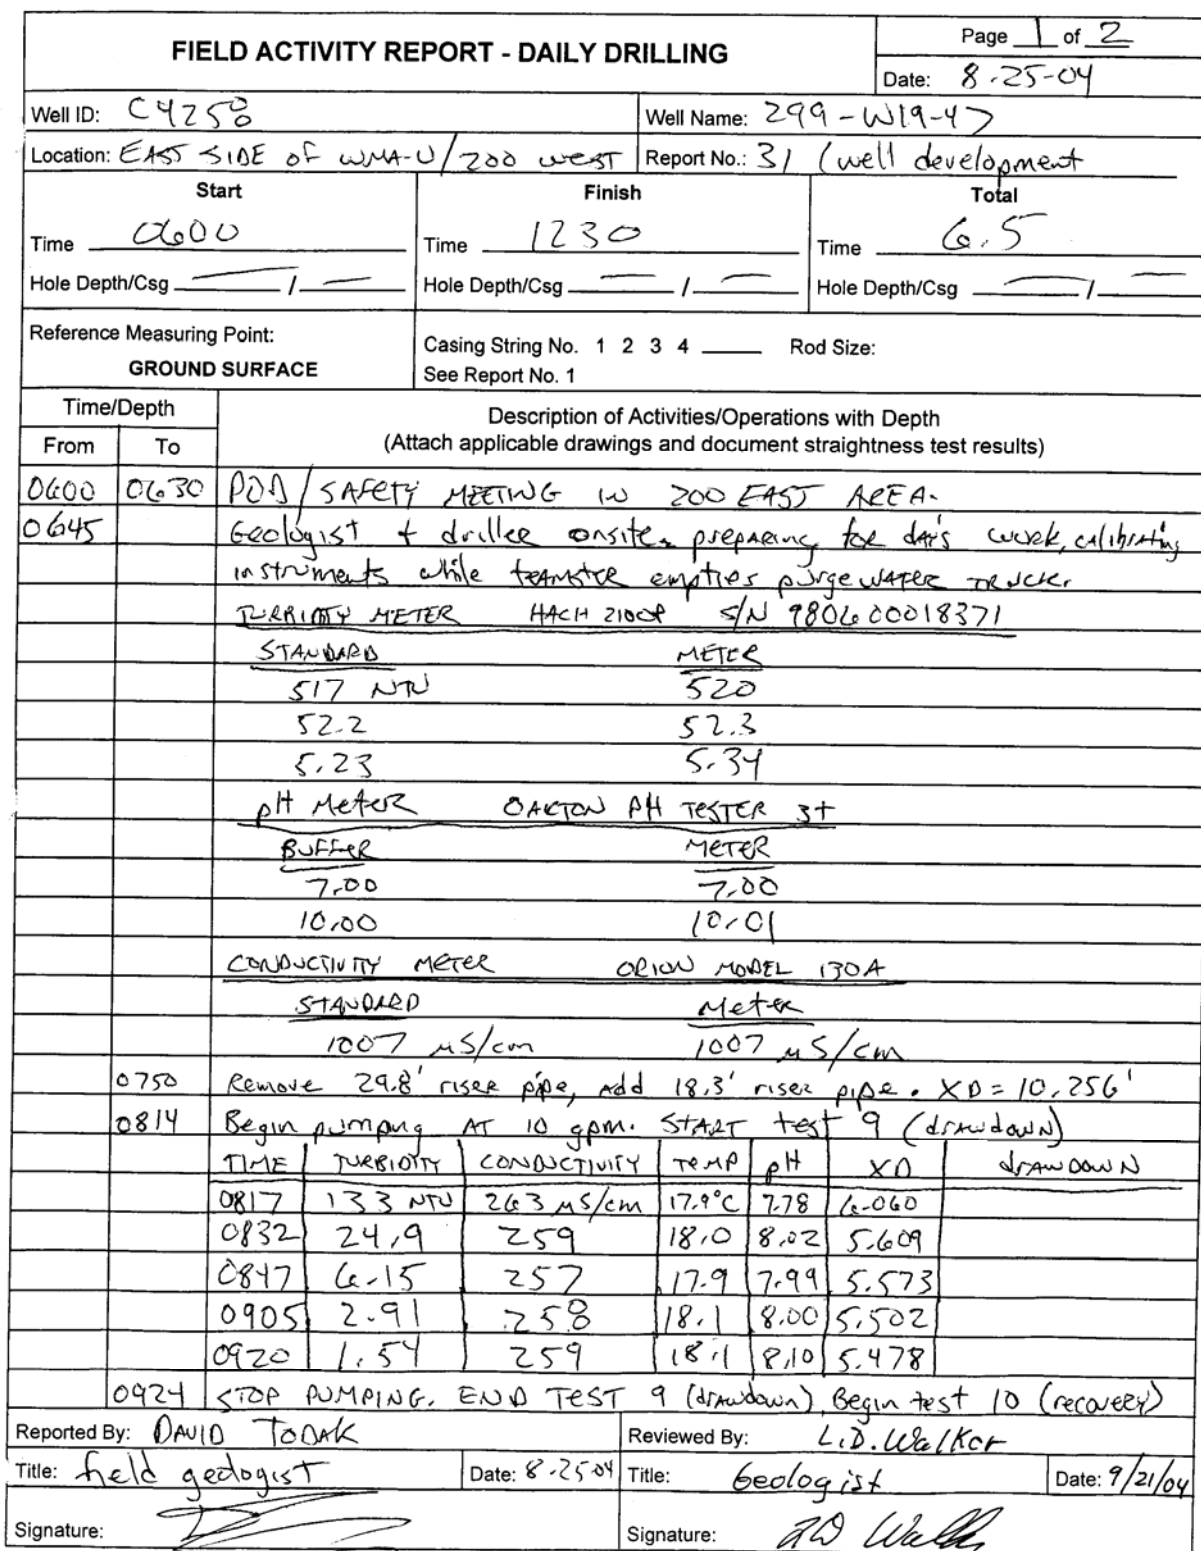 FIELD ACTIVITY REPORT - DAILY DRILLING
Page 1 of 2
Date: 8-25-04
Well ID: C4258
Well Name: 299-W19-47
Location: EAST SIDE OF WMA-U/200 WEST
Report No.: 31 (well development
Start
Finish
Total
Time 0600
Time 1230
Time 6.5
Hole Depth/Csg — / —
Hole Depth/Csg — / —
Hole Depth/Csg — / —
Reference Measuring Point:
GROUND SURFACE
Casing String No. 1 2 3 4 ____ Rod Size:
See Report No. 1
Time/Depth
From To
Description of Activities/Operations with Depth
(Attach applicable drawings and document straightness test results)
0600 0630 POD/SAFETY MEETING IN 200 EAST AREA.
0645 Geologist + driller onsite preparing for day's work, calibrating
instruments while teamster empties purgewater truck.
TURBIDITY METER HACH 2100P S/N 980600018371
STANDARD METER
517 NTU 520
52.2 52.3
5.23 5.34
pH Meter OAKTON PH TESTER 3+
BUFFER METER
7.00 7.00
10.00 10.01
CONDUCTIVITY METER ORION MODEL 130A
STANDARD Meter
1007 µS/cm 1007 µS/cm
0750 Remove 29.8' riser pipe, add 18.3' riser pipe. XD = 10.256'
0814 Begin pumping AT 10 gpm. START test 9 (drawdown)
TIME TURBIDITY CONDUCTIVITY TEMP pH XD drawdown
0817 133 NTU 263 µS/cm 17.9°C 7.78 6.060
0832 24.9 259 18.0 8.02 5.609
0847 6.15 257 17.9 7.99 5.573
0905 2.91 258 18.1 8.00 5.502
0920 1.54 259 18.1 8.10 5.478
0924 STOP PUMPING. END TEST 9 (drawdown) Begin test 10 (recovery)
Reported By: DAVID TODAK
Reviewed By: L.D. Walker
Title: field geologist Date: 8-25-04
Title: Geologist Date: 9/21/04
Signature:
Signature: LD Walker